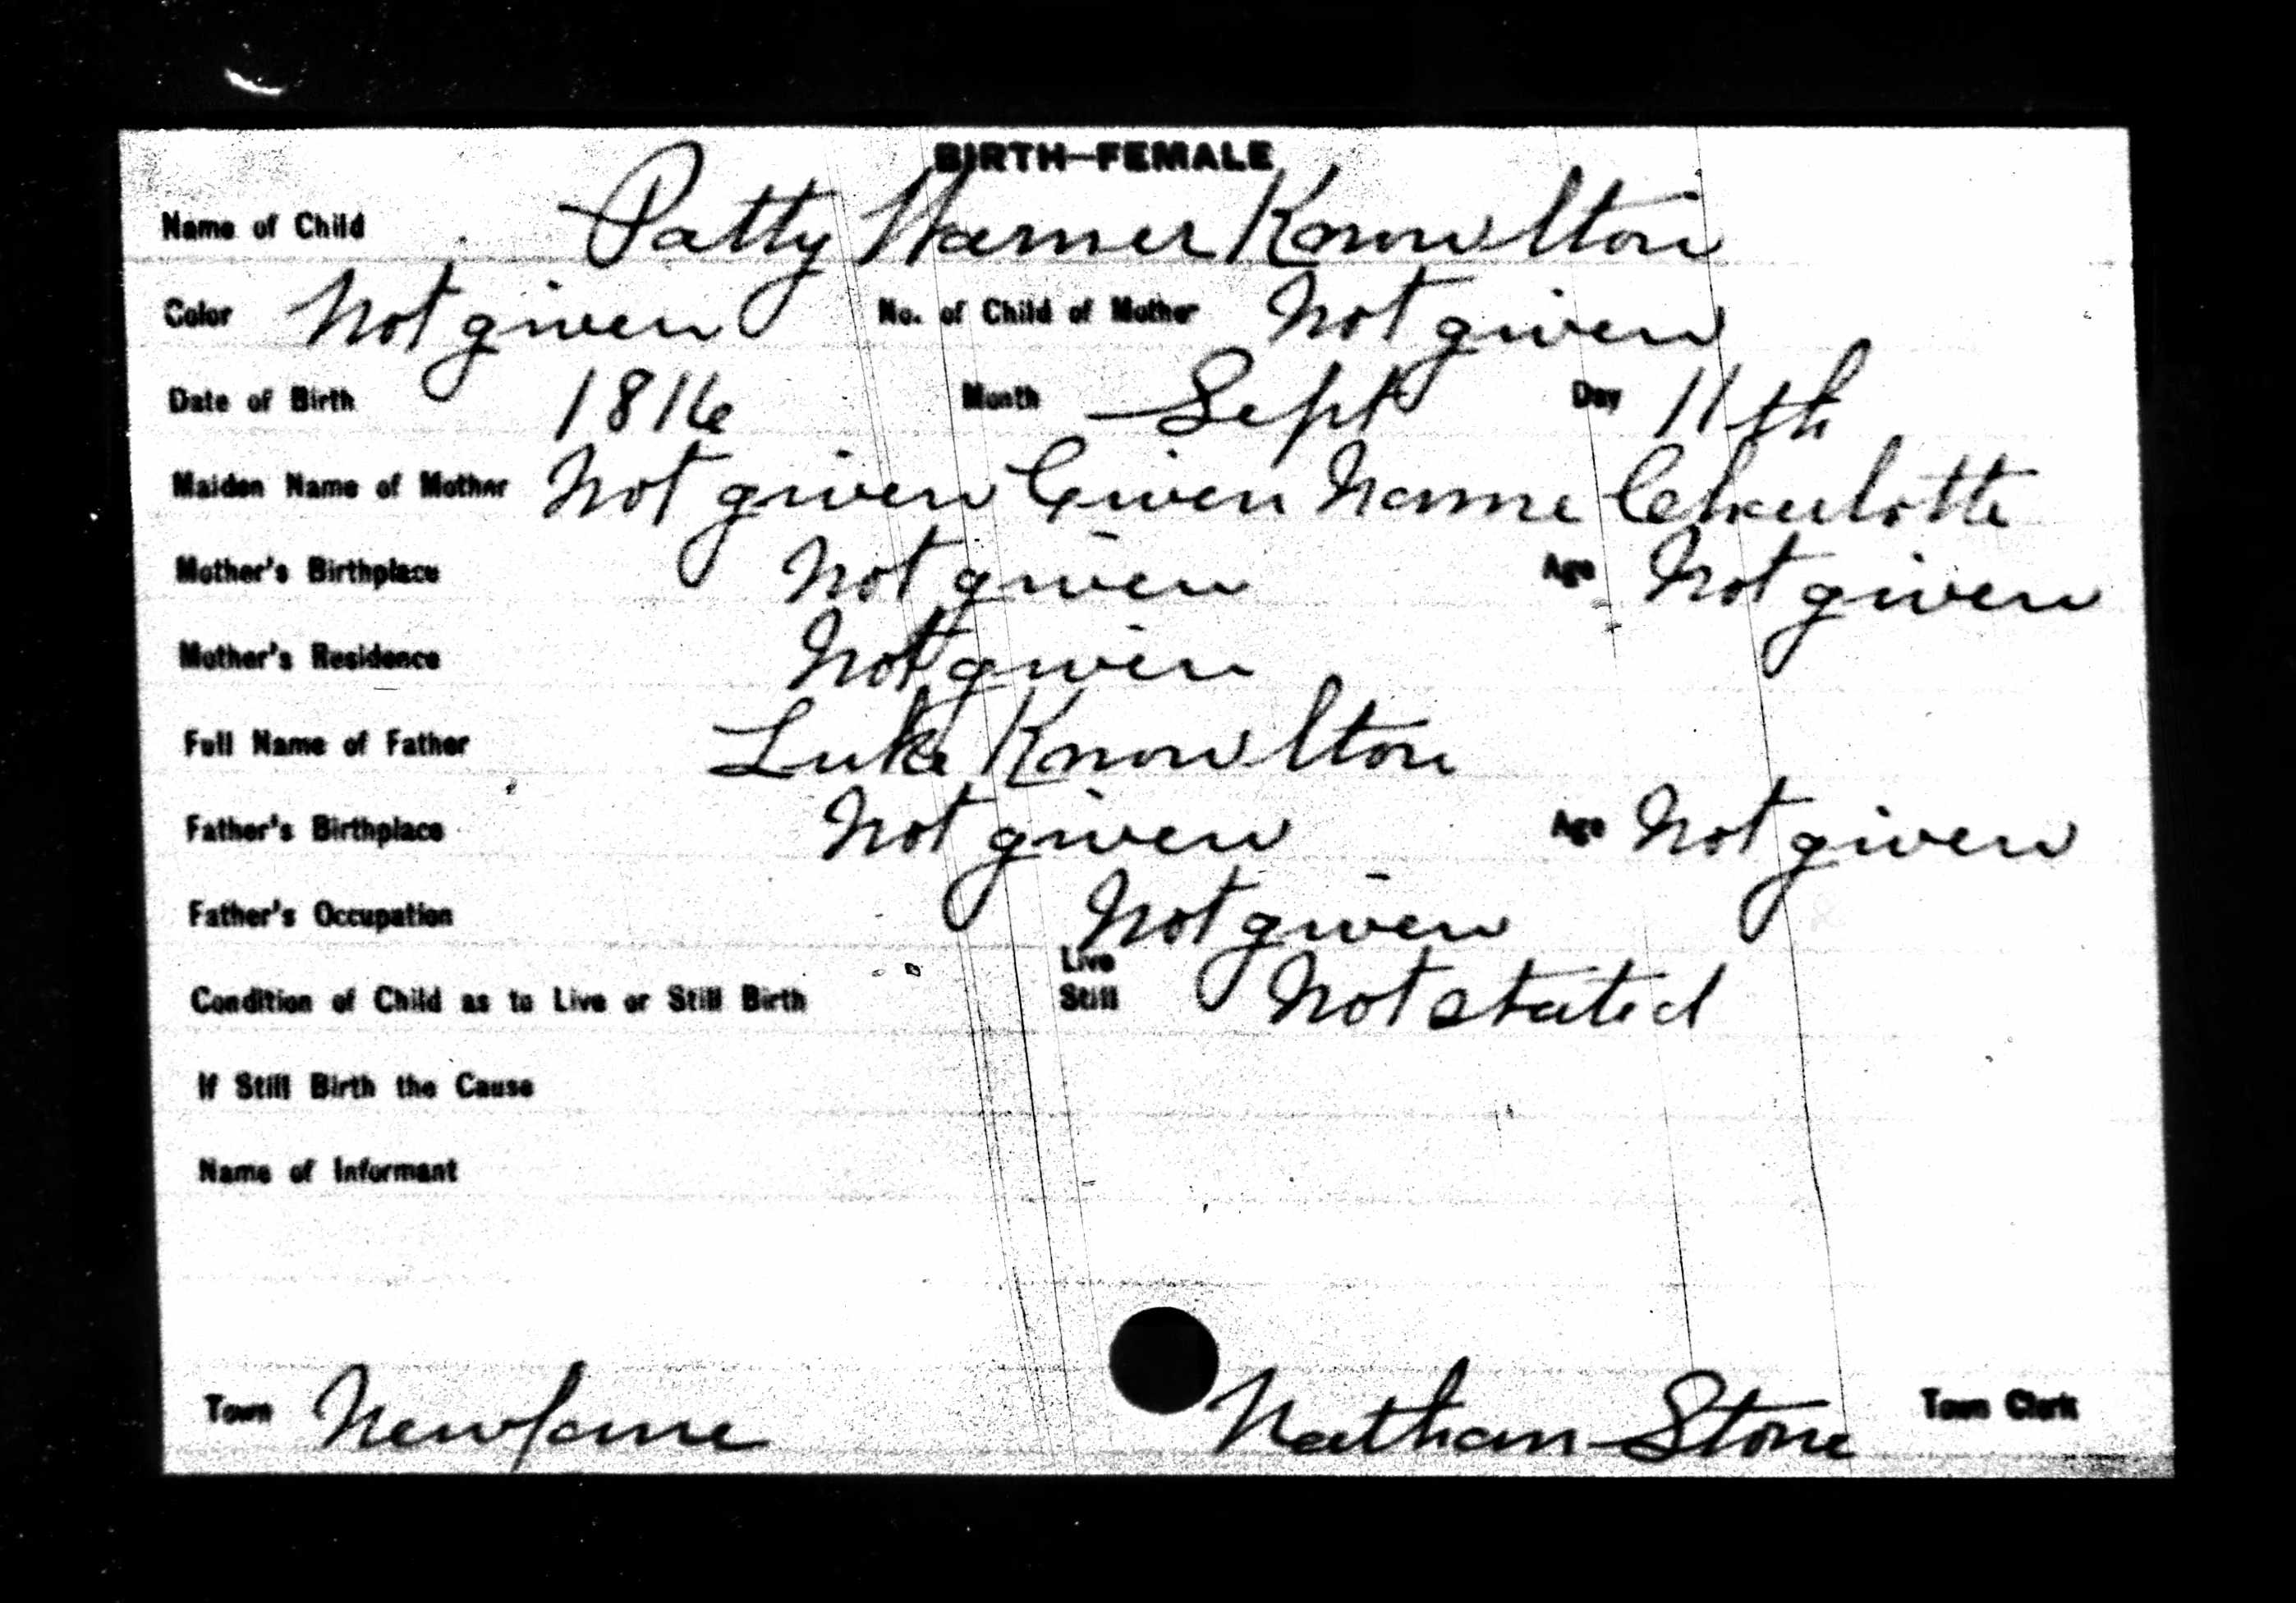 BIRTH—FEMALE
Name of Child Patty Warner Knowlton
Color Not given No. of Child of Mother Not given
Date of Birth 1816 Month Sept Day 11th
Maiden Name of Mother Not given Given Name Charlotte
Mother's Birthplace Not given Age Not given
Mother's Residence Not given
Full Name of Father Luke Knowlton
Father's Birthplace Not given Age Not given
Father's Occupation Not given
Condition of Child as to Live or Still Birth Live Still Not stated
If Still Birth the Cause
Name of Informant
Town Newfane Nathan Stone Town Clerk